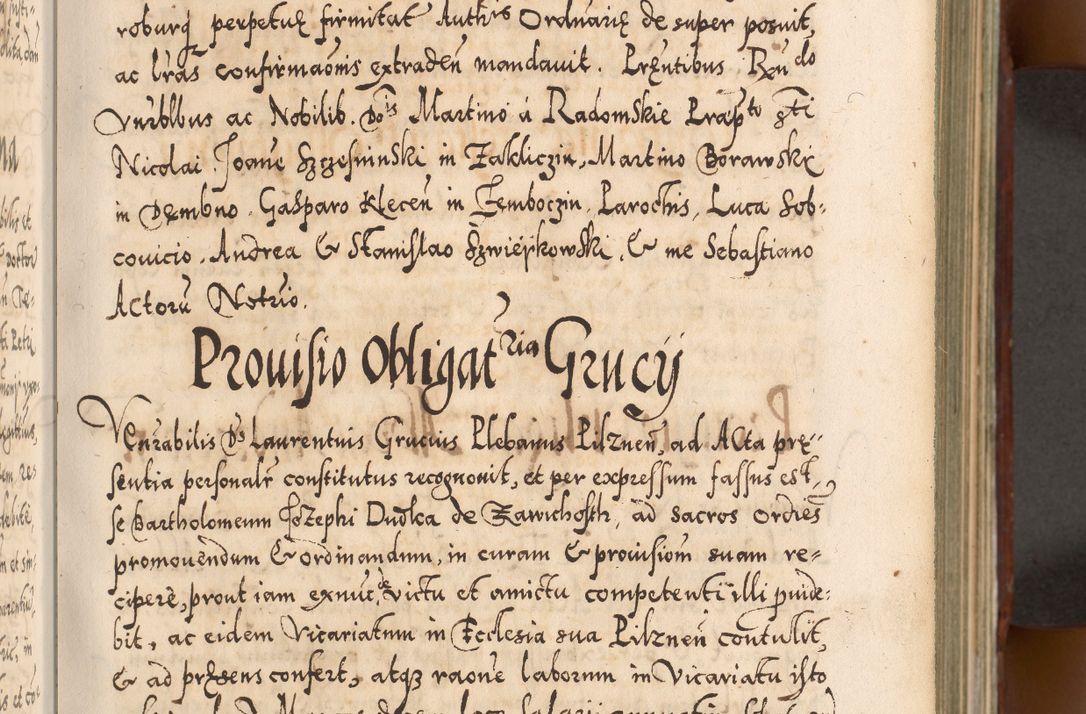 roburq perpetuę firmitat Authris Ordnarię de super posuit,
ac lras confirmaoms extraden mandauit. Pręntibus Rndo
Vnrbllbus ac Nobilib. Dis Martino á Radomskie Prapto
Nicolai. Joane Szczesninski in Zakliczin, Martino Borawski
in Dembno. Gasparo Klecen in Jemboczin. Parochis, Luca Sob:
couicio. Andrea & Stanislao Szwieykowski. & me Sebastiano
Actoru Notrio.
Prouisio Obligatria Grucÿ
Venrabilis Ds Laurentius Grucius Plebanus Pilznen, ad Acta prę:
sentia personalr constitutus recognouit, et per expressum fassus est,
se Bartholomeum Jozephi Dudka de Zawichosth, ad sacros ordies
promouendum & ordinandum, in curam & prouisiom suam re=
cipere, prout iam exnuc, de victu et amictu competenti illi puide:
bit, ac eidem Vicariatum in Ecclesia sua Pilznen contulit,
& ad pręsens confert, atqz raone laborum in Vicariatu isto